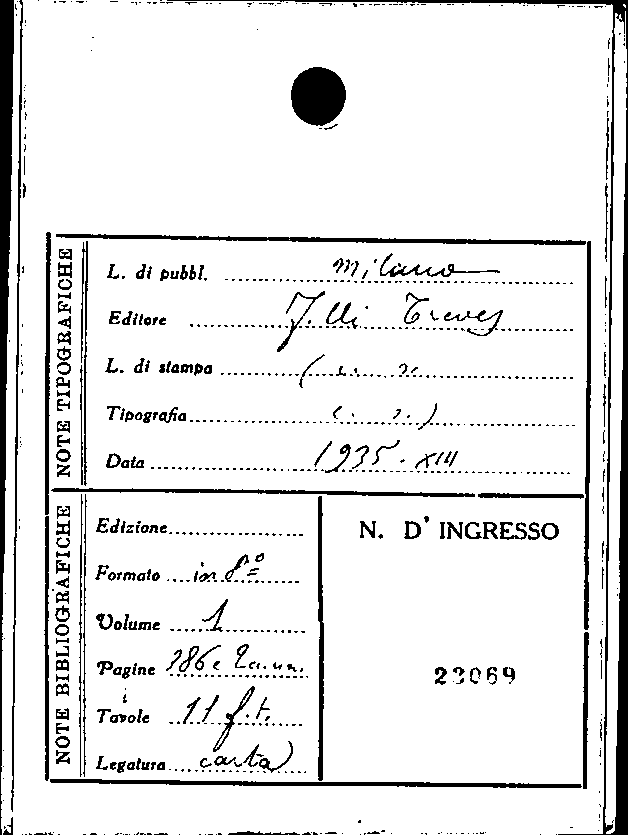 NOTE TIPOGRAFICHE
L. di pubbl. Milano
Editore F.lli Treves
L. di stampa
Tipografia
Data 1935 - XIII
NOTE BIBLIOGRAFICHE
Edizione
Formato in 8º
Volume 1
Pagine
Tavole 11 f.t.
Legatura carta
N. D' INGRESSO
23069